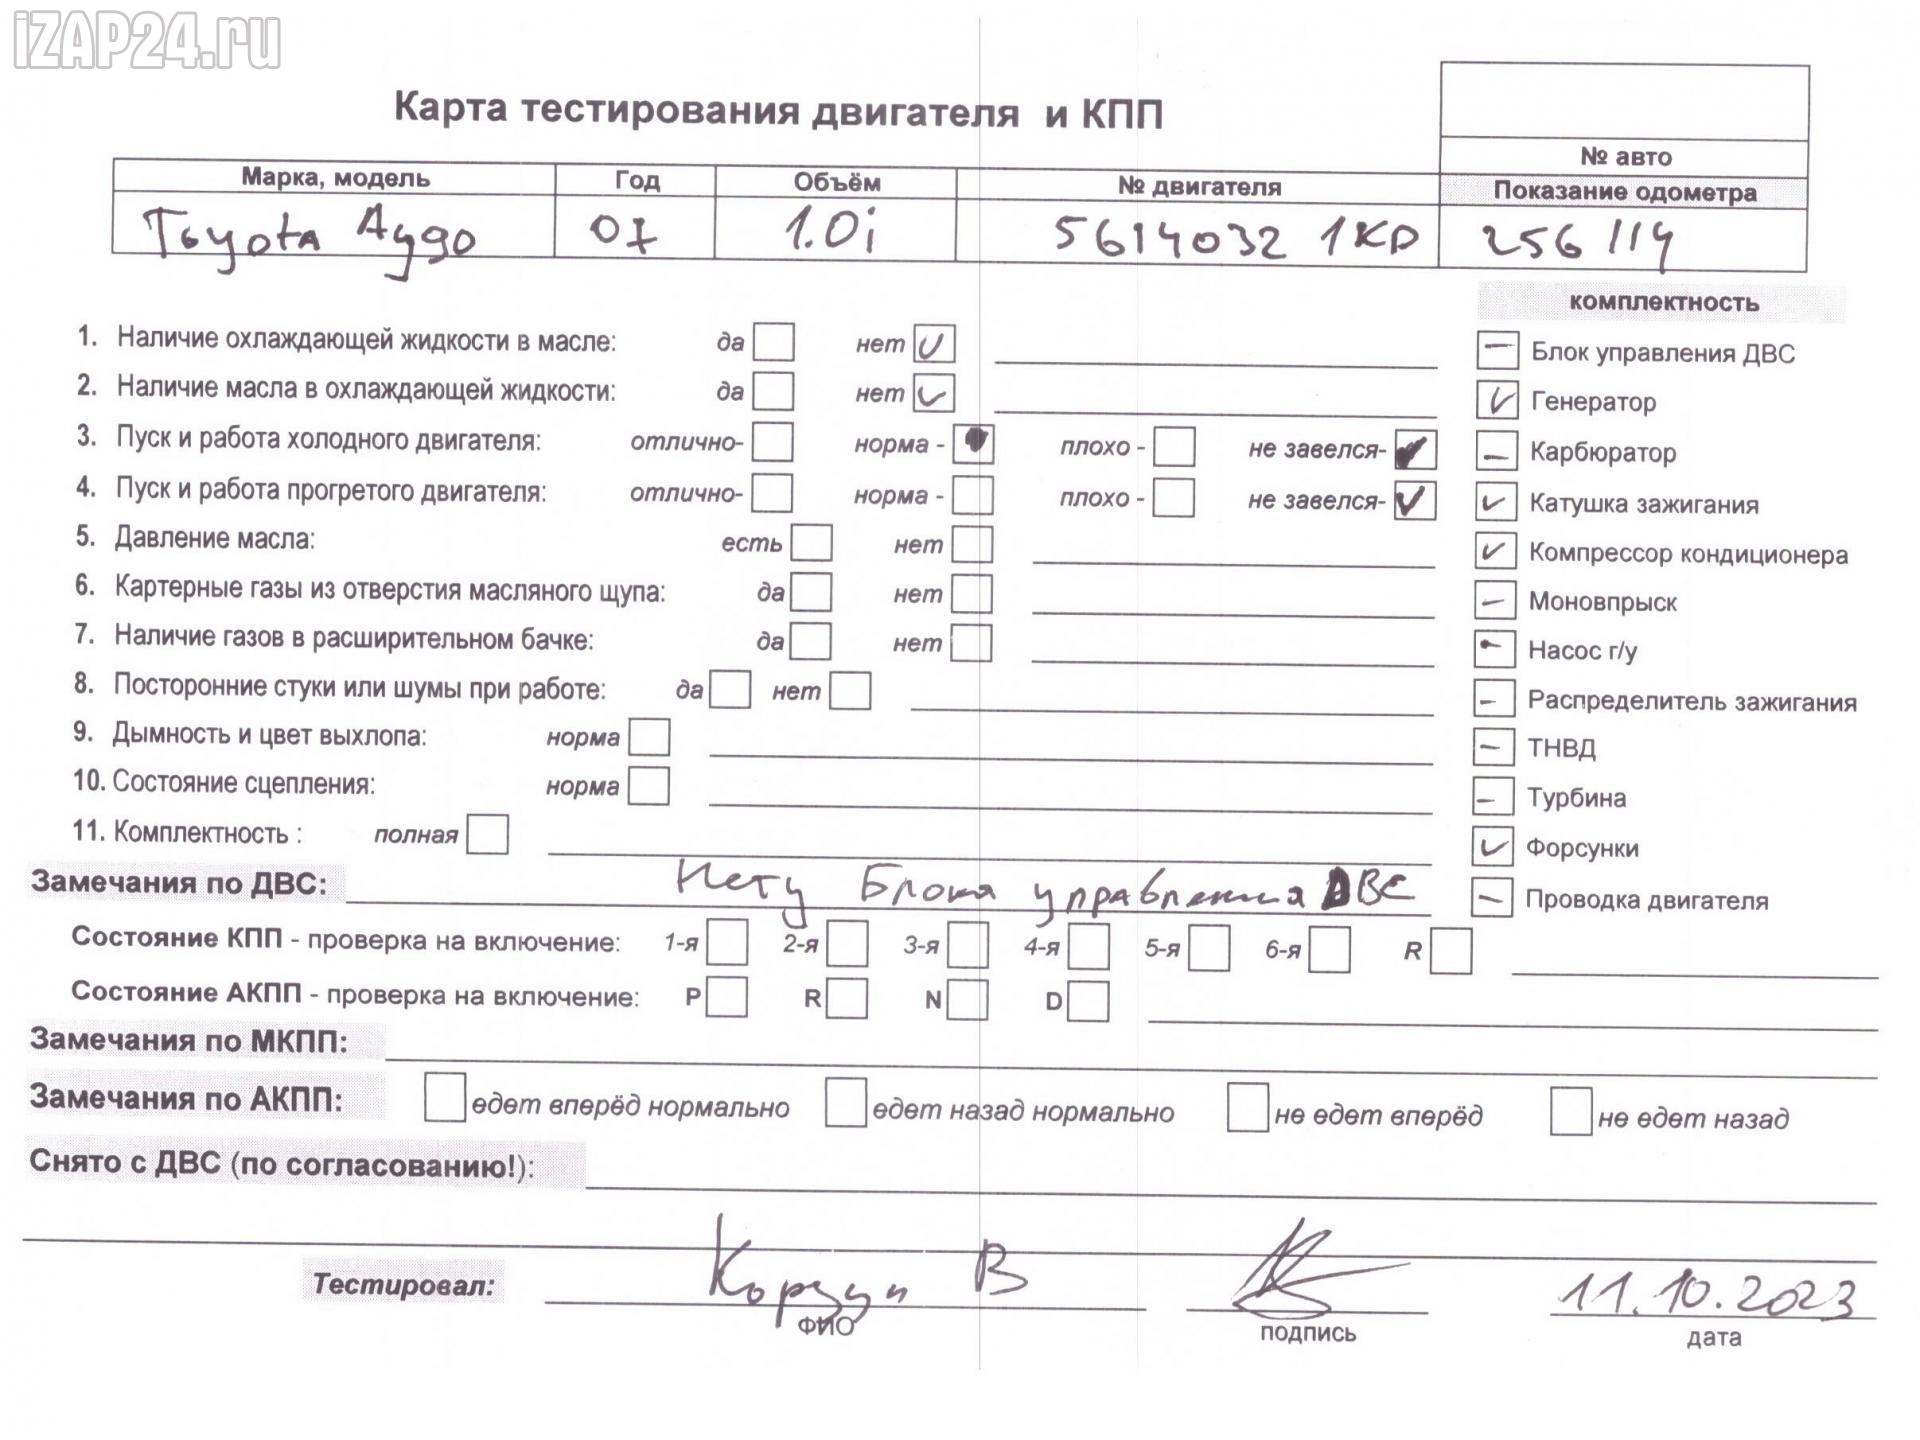 iZAP24.ru
Карта тестирования двигателя и КПП
№ авто
Марка, модель Год Объём № двигателя Показание одометра
Toyota Aygo 07 1.0i 5614032 1KD 256114
комплектность
1. Наличие охлаждающей жидкости в масле: да нет
Блок управления ДВС
2. Наличие масла в охлаждающей жидкости: да нет
Генератор
3. Пуск и работа холодного двигателя: отлично- норма - плохо - не завелся-
Карбюратор
4. Пуск и работа прогретого двигателя: отлично- норма - плохо - не завелся-
Катушка зажигания
5. Давление масла: есть нет
Компрессор кондиционера
6. Картерные газы из отверстия масляного щупа: да нет
Моновпрыск
7. Наличие газов в расширительном бачке: да нет
Насос г/у
8. Посторонние стуки или шумы при работе: да нет
Распределитель зажигания
9. Дымность и цвет выхлопа: норма
ТНВД
10. Состояние сцепления: норма
Турбина
11. Комплектность : полная
Форсунки
Замечания по ДВС: Нету Блока управления ДВС
Проводка двигателя
Состояние КПП - проверка на включение: 1-я 2-я 3-я 4-я 5-я 6-я R
Состояние АКПП - проверка на включение: P R N D
Замечания по МКПП:
Замечания по АКПП: едет вперёд нормально едет назад нормально не едет вперёд не едет назад
Снято с ДВС (по согласованию!):
Тестировал: Корзун В 11.10.2023
ФИО подпись дата